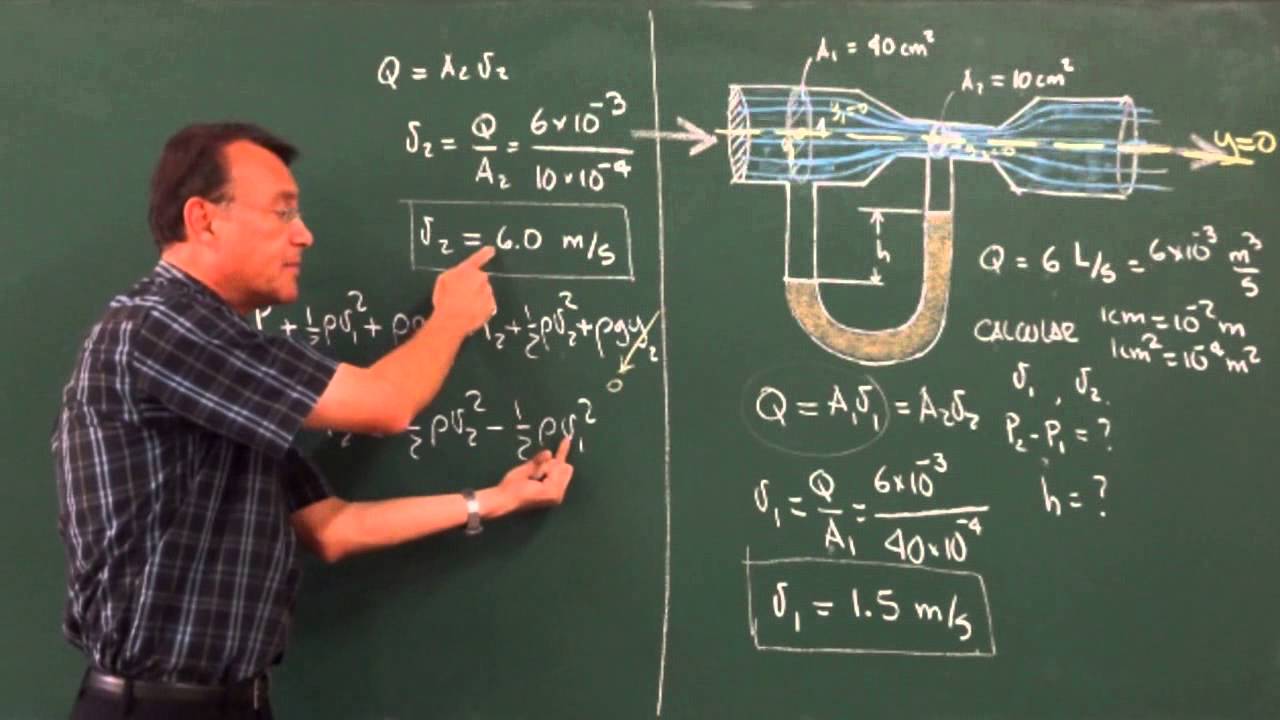 Q = A₂ υ₂
υ₂ = Q/A₂ = 6×10⁻³/10×10⁻⁴
υ₂ = 6.0 m/s
P + ½ρυ₁² + ρg ₂ + ½ρυ₂² + ρgy₂
0
₂ ½ρυ₂² − ½ρυ₁²
A₁ = 40 cm²
A₂ = 10 cm²
y₁=0
y=0
h
Q = 6 L/s = 6×10⁻³ m³/s
CALCULAR
1cm = 10⁻² m
1cm² = 10⁻⁴ m²
υ₁, υ₂.
P₂ − P₁ = ?
h = ?
Q = A₁υ₁ = A₂υ₂
υ₁ = Q/A₁ = 6×10⁻³/40×10⁻⁴
υ₁ = 1.5 m/s